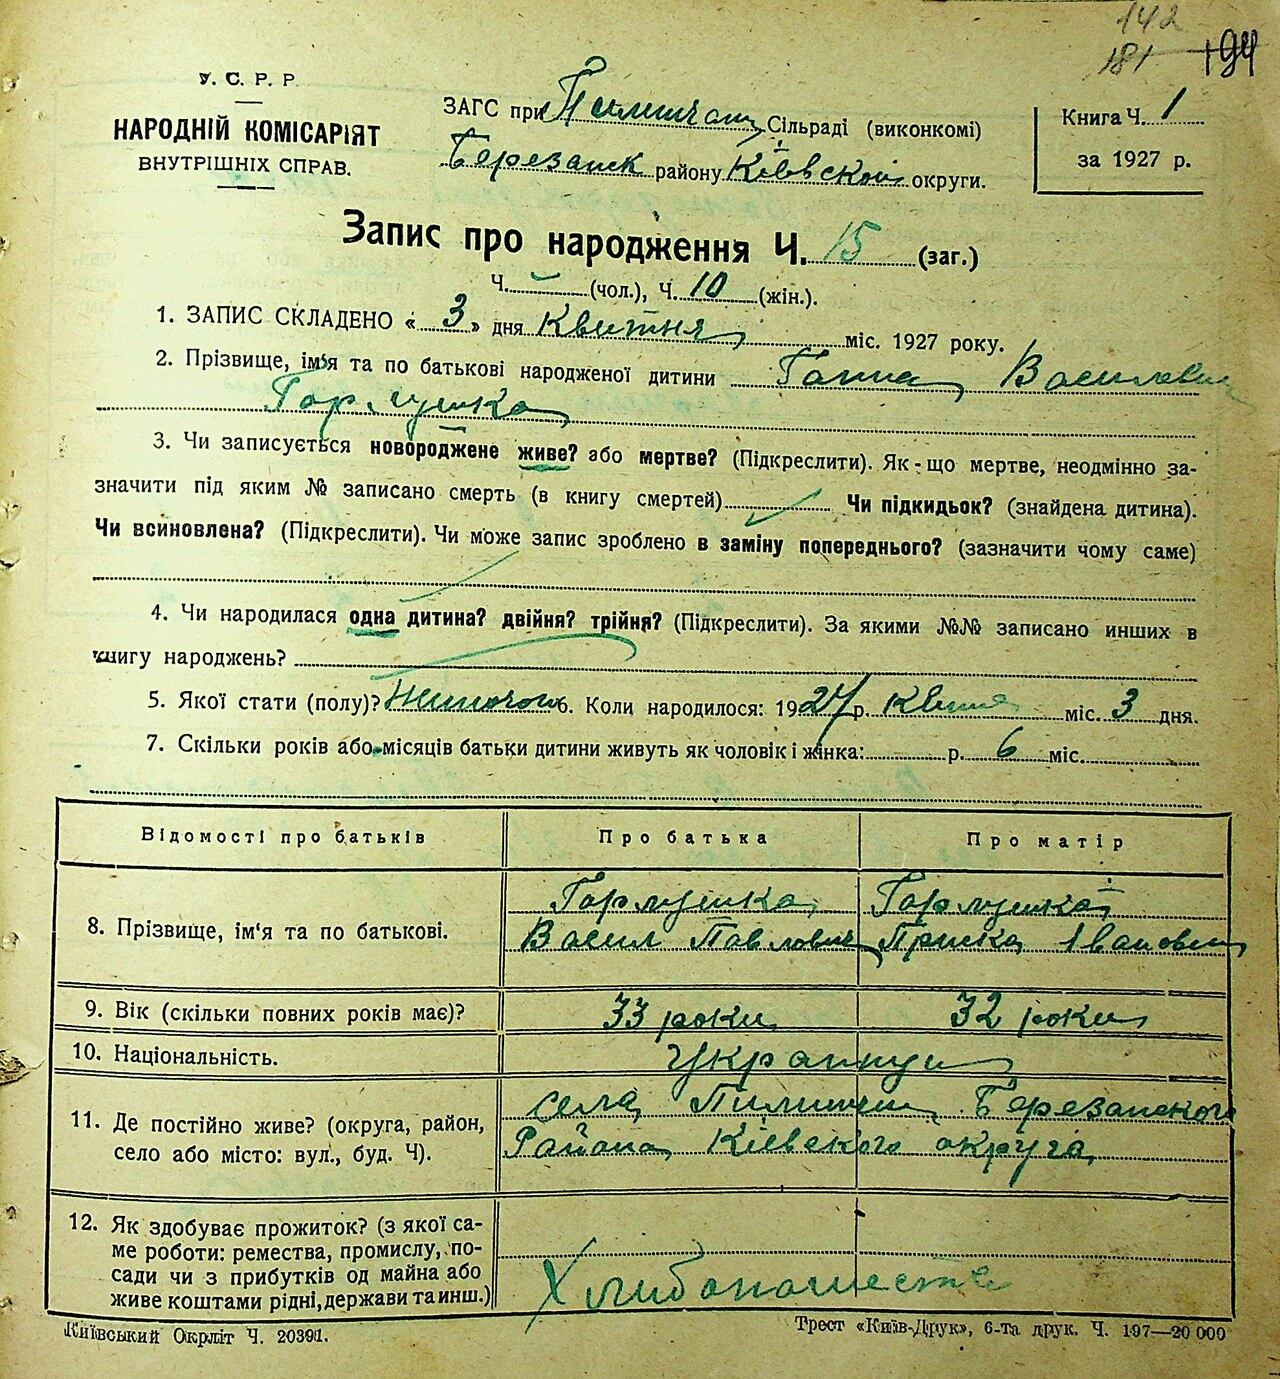 142
181 194
У. С. Р. Р.
НАРОДНІЙ КОМІСАРІЯТ
ВНУТРІШНІХ СПРАВ.
ЗАГС при Пилипчан Сільраді (виконкомі)
Березанск району Київской округи.
Книга Ч. 1
за 1927 р.
Запис про народження Ч. 15 (заг.)
Ч. — (чол.), Ч. 10 (жін.).
1. ЗАПИС СКЛАДЕНО « 3 » дня Квитня міс. 1927 року.
2. Прізвище, ім'я та по батькові народженої дитини Ганна Василевна
Горлушка
3. Чи записується новороджене живе? або мертве? (Підкреслити). Як-що мертве, неодмінно за-
значити під яким № записано смерть (в книгу смертей) Чи підкидьок? (знайдена дитина).
Чи всиновлена? (Підкреслити). Чи може запис зроблено в заміну попереднього? (зазначити чому саме)
4. Чи народилася одна дитина? двійня? трійня? (Підкреслити). За якими №№ записано инших в
книгу народжень?
5. Якої стати (полу)? 6. Коли народилося: 1927 р. Квитня міс. 3 дня.
7. Скільки років або місяців батьки дитини живуть як чоловік і жінка: р. 6 міс.
Відомості про батьків Про батька Про матір
8. Прізвище, ім'я та по батькові.
Горлушка Горлушка
Васил Павлович Приска Івановна
9. Вік (скільки повних років має)? 33 роки 32 роки
10. Національність. Украинци
11. Де постійно живе? (округа, район,
село або місто: вул., буд. Ч).
села Пилипчи Березанского
Района Київского округа
12. Як здобуває прожиток? (з якої са-
ме роботи: ремества, промислу, по-
сади чи з прибутків од майна або
живе коштами рідні, держави та инш.)
Хлибопашество
Київський Окрліт Ч. 20391.
Трест «Київ-Друк», 6-та друк. Ч. 197—20 000